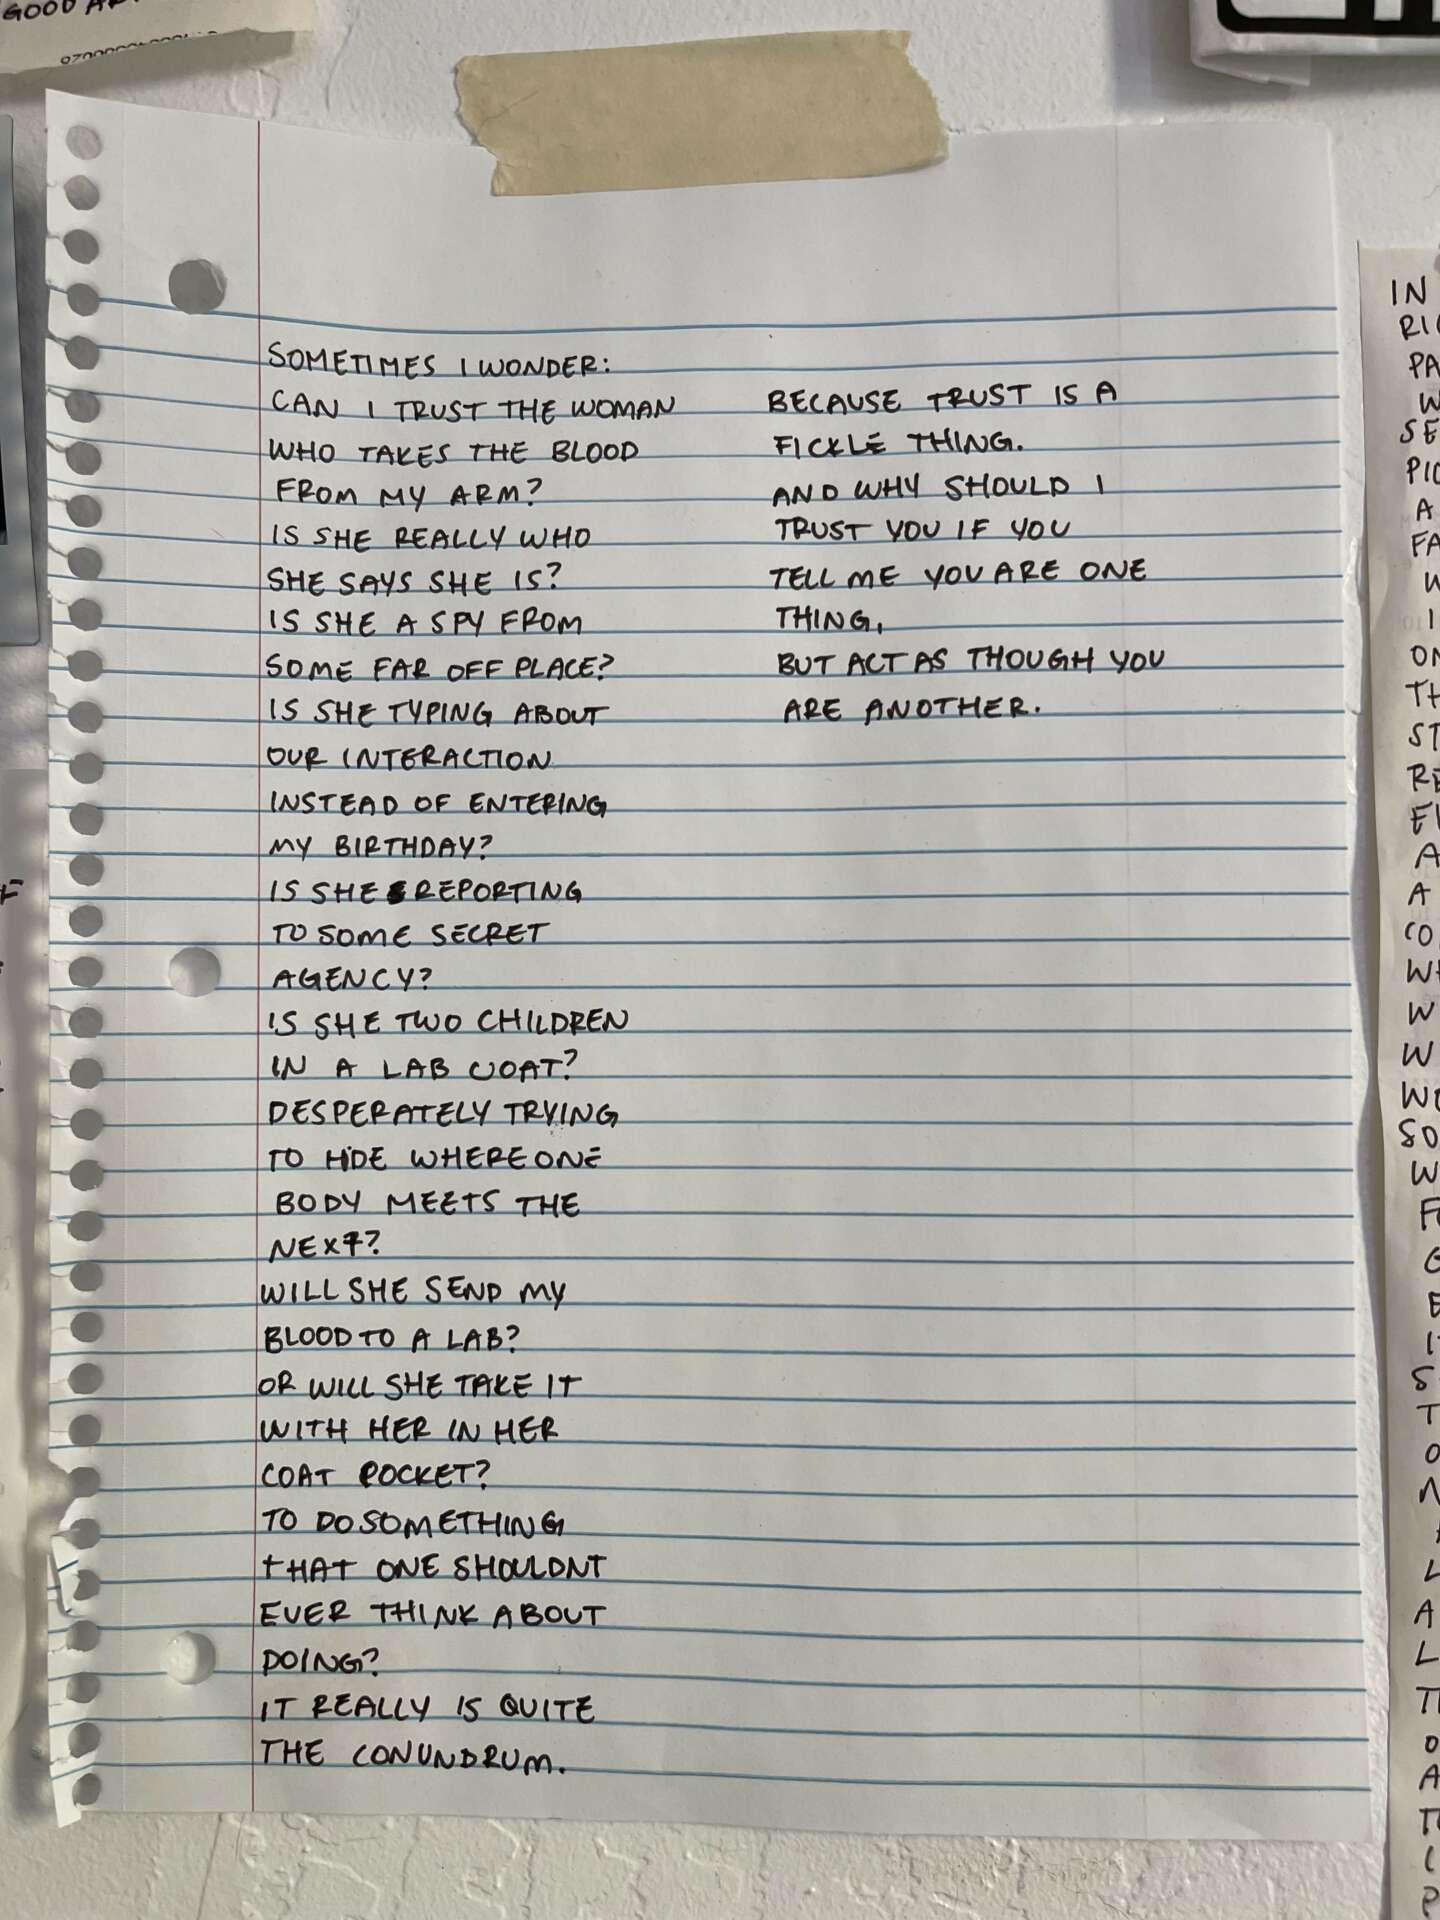 GOOD
SOMETIMES I WONDER:
CAN I TRUST THE WOMAN
WHO TAKES THE BLOOD
FROM MY ARM?
IS SHE REALLY WHO
SHE SAYS SHE IS?
IS SHE A SPY FROM
SOME FAR OFF PLACE?
IS SHE TYPING ABOUT
OUR INTERACTION
INSTEAD OF ENTERING
MY BIRTHDAY?
IS SHE REPORTING
TO SOME SECRET
AGENCY?
IS SHE TWO CHILDREN
IN A LAB COAT?
DESPERATELY TRYING
TO HIDE WHERE ONE
BODY MEETS THE
NEXT?
WILL SHE SEND MY
BLOOD TO A LAB?
OR WILL SHE TAKE IT
WITH HER IN HER
COAT POCKET?
TO DO SOMETHING
THAT ONE SHOULDNT
EVER THINK ABOUT
DOING?
IT REALLY IS QUITE
THE CONUNDRUM.
BECAUSE TRUST IS A
FICKLE THING.
AND WHY SHOULD I
TRUST YOU IF YOU
TELL ME YOU ARE ONE
THING,
BUT ACT AS THOUGH YOU
ARE ANOTHER.
IN